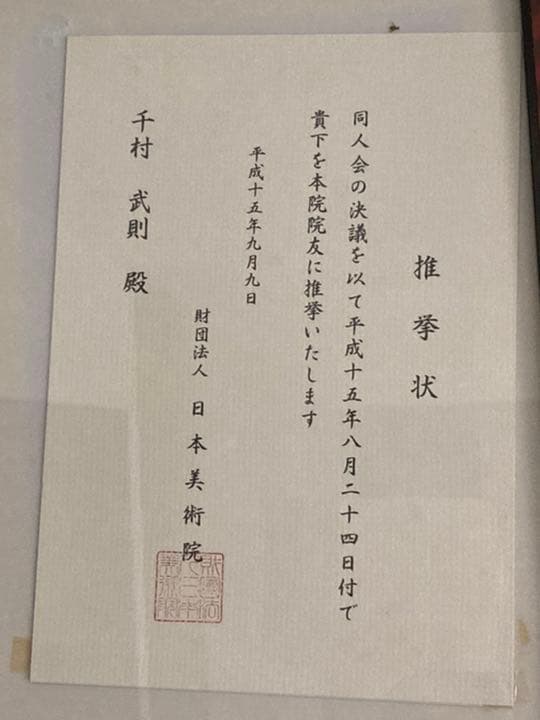 推挙状
同人会の決議を以て平成十五年八月二十四日付で
貴下を本院院友に推挙いたします
平成十五年九月九日
財団法人 日本美術院
千村 武則 殿